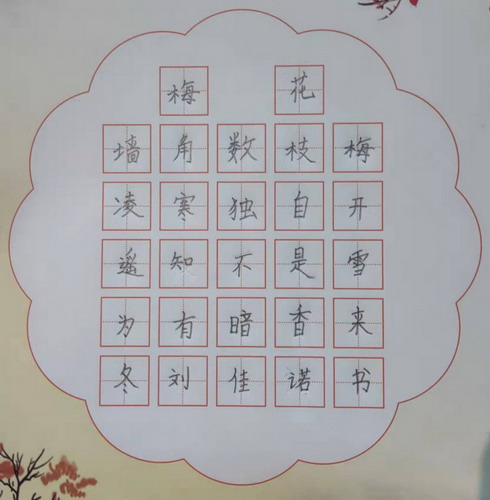 梅花
墙角数枝梅
凌寒独自开
遥知不是雪
为有暗香来
冬刘佳诺书